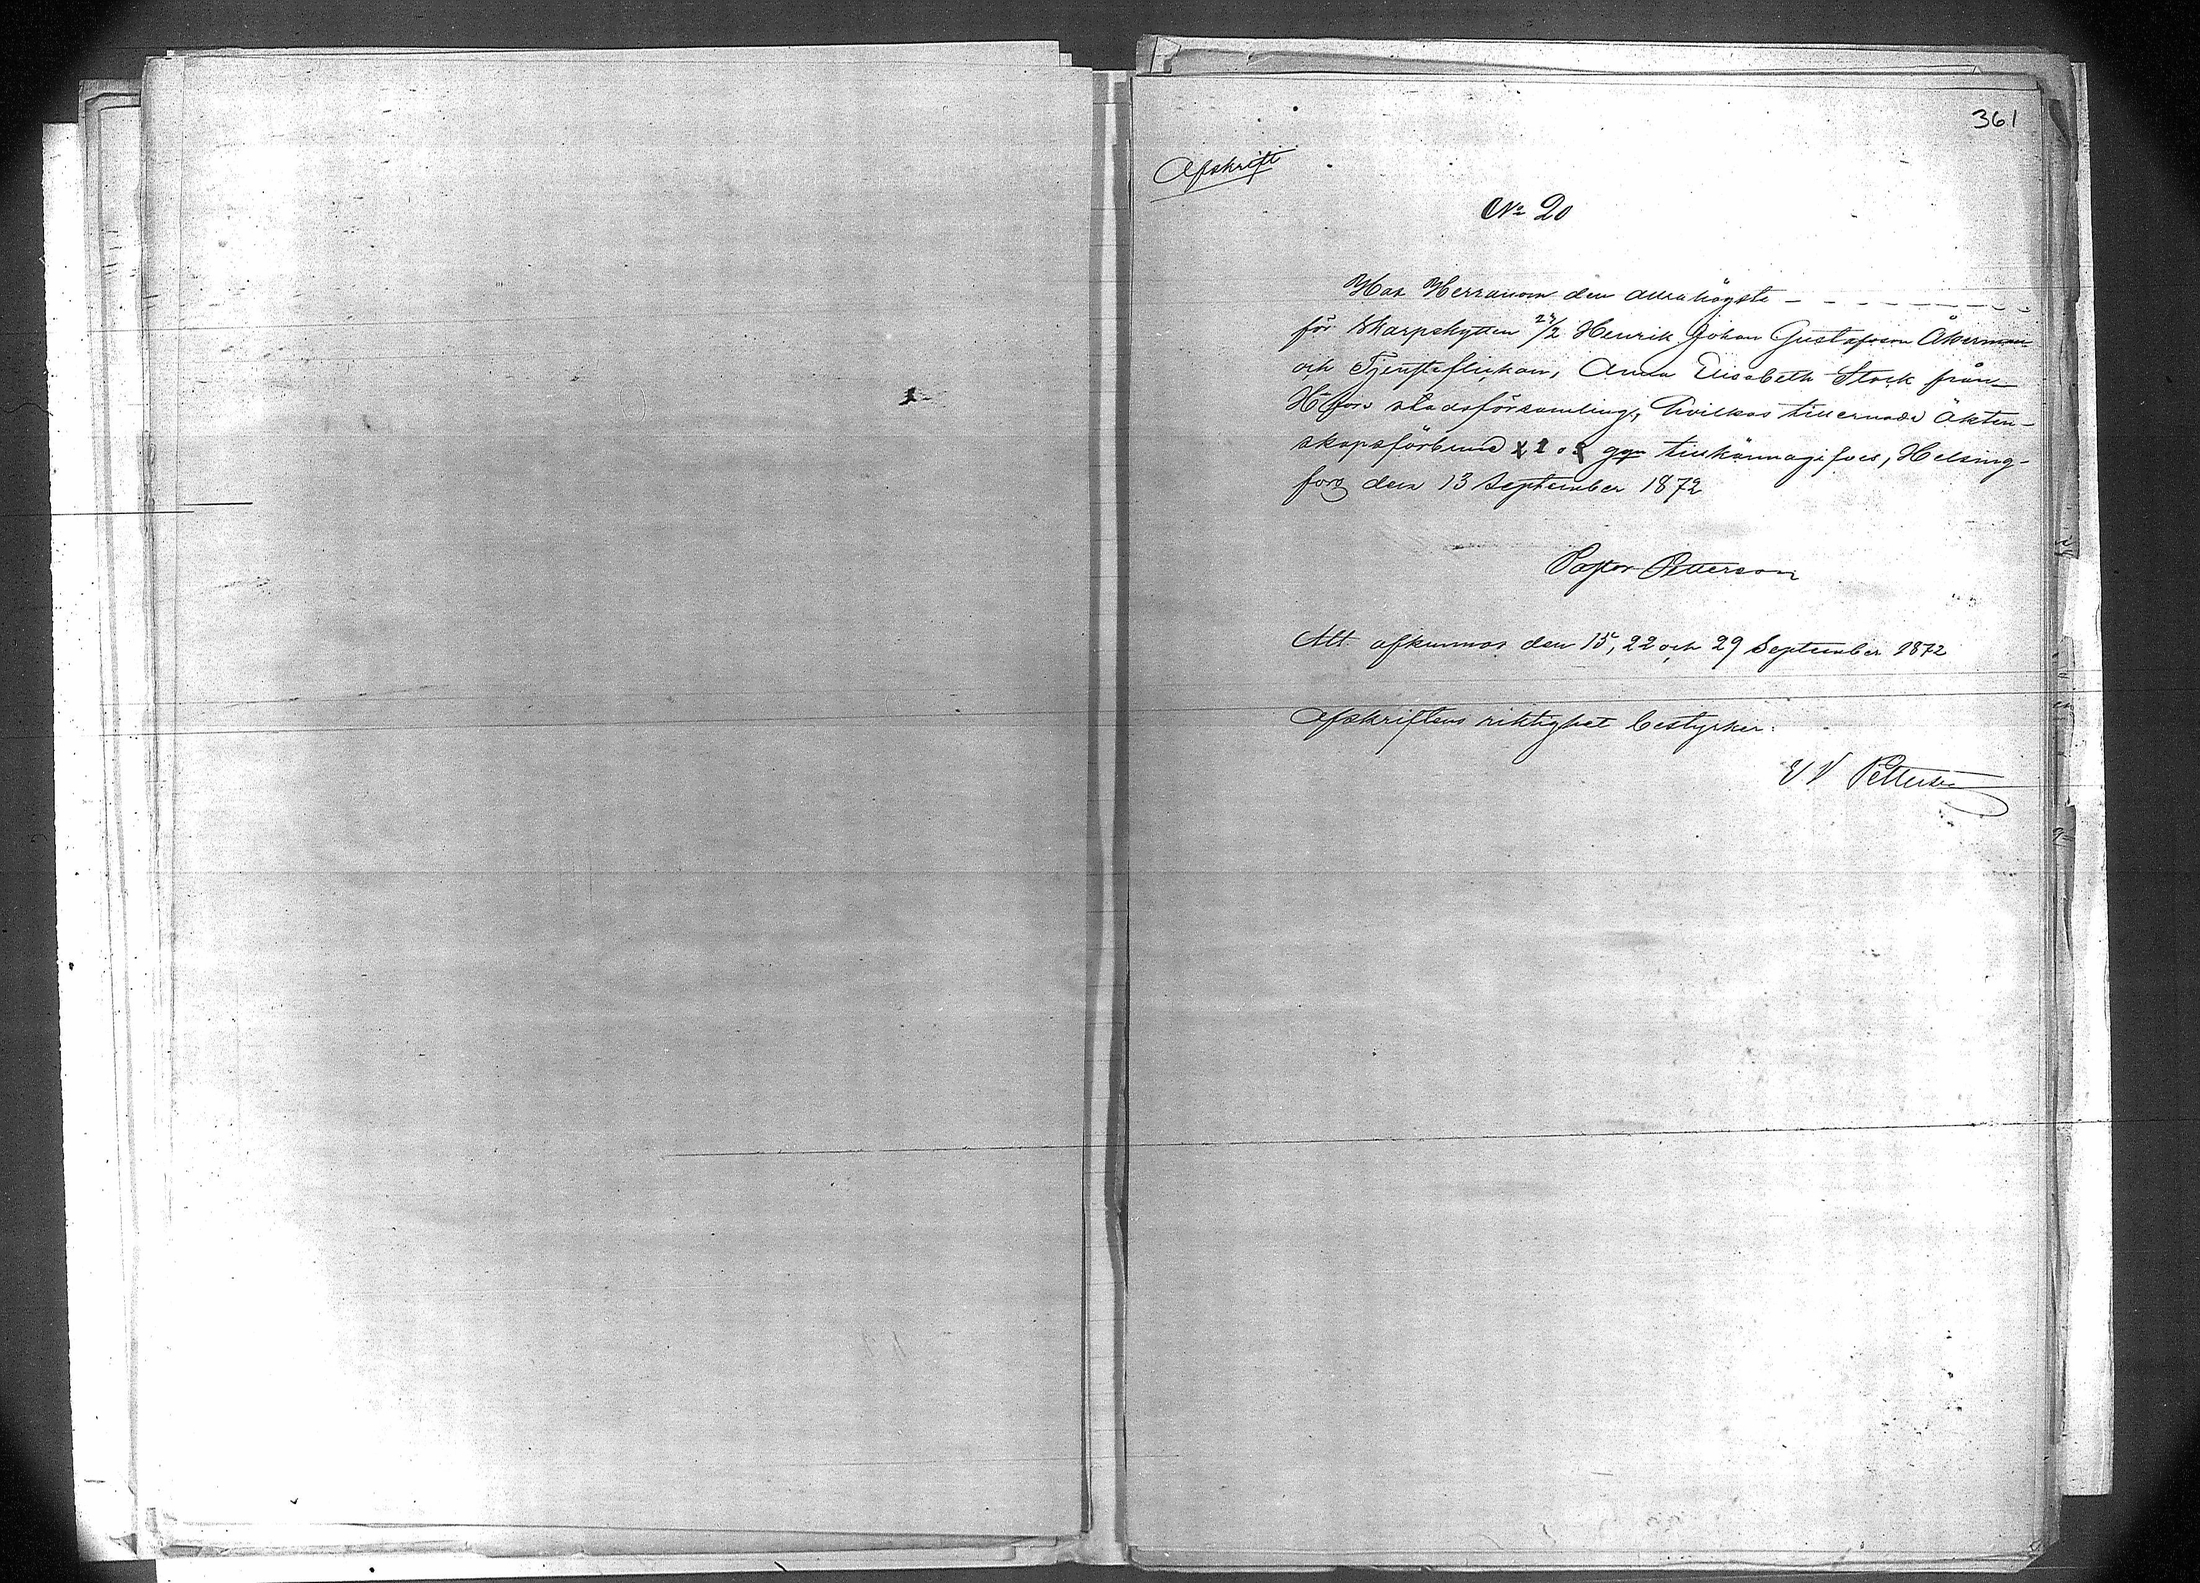 361
Afskrift
No 20
Hos Herranom den allrahögste - - - - - - - -
för skarpskytten 27/2 Henrik Johan Gustafsson Åkerman
och Tjensteflickan, Anna Elisabeth Stock från
H-fors stadsförsamling, hvilkas tillernade äkten-
skapsförbund ggn tillkännagifves, Helsing-
fors den 13 September 1872
Pastor Petterson
Alt afkunnas den 15, 22 och 29 September 1872
Afskriftens riktighet bestyrker:
Petterson